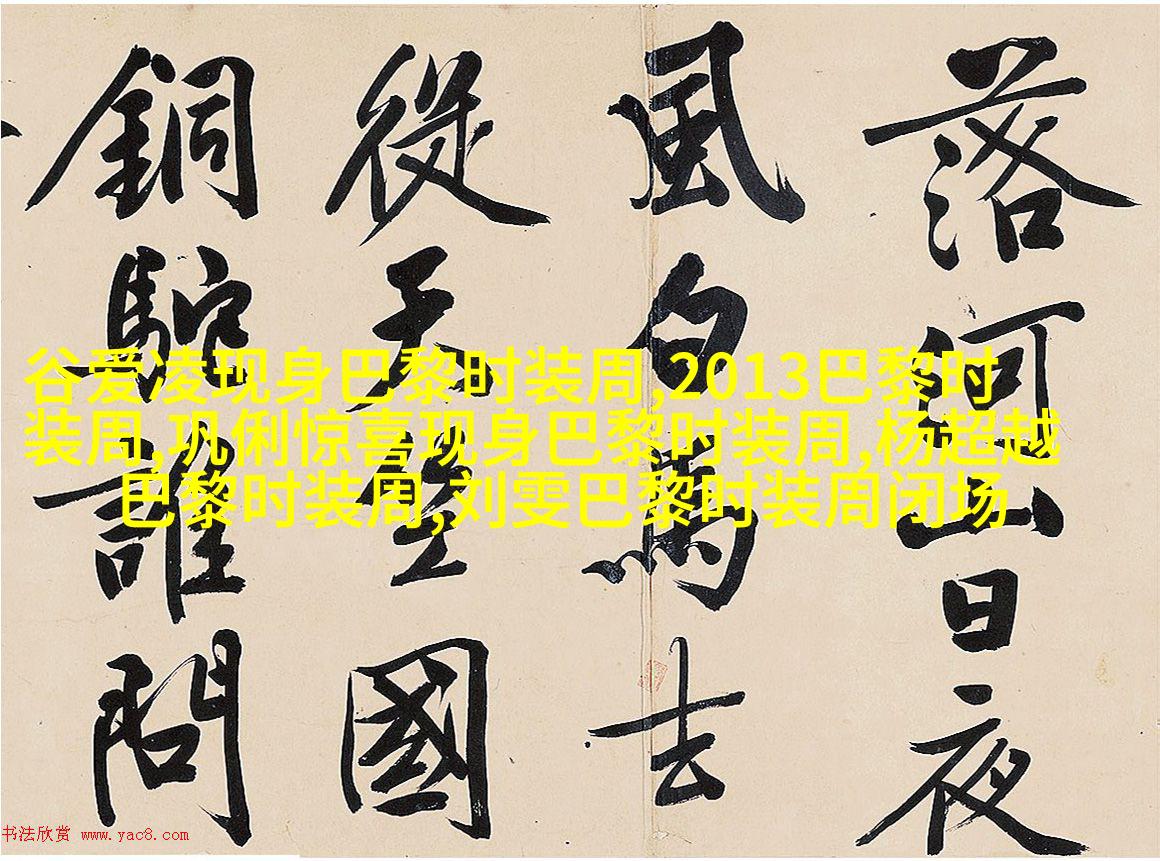 落何山日夜
風白馬去
從天竺國
銅駝誰問
谷爱凌现身巴黎时装周,2013巴黎时
装周,巩俐惊喜现身巴黎时装周,杨超越
巴黎时装周,刘雯巴黎时装周闭场
书法欣赏 www.yac8.com